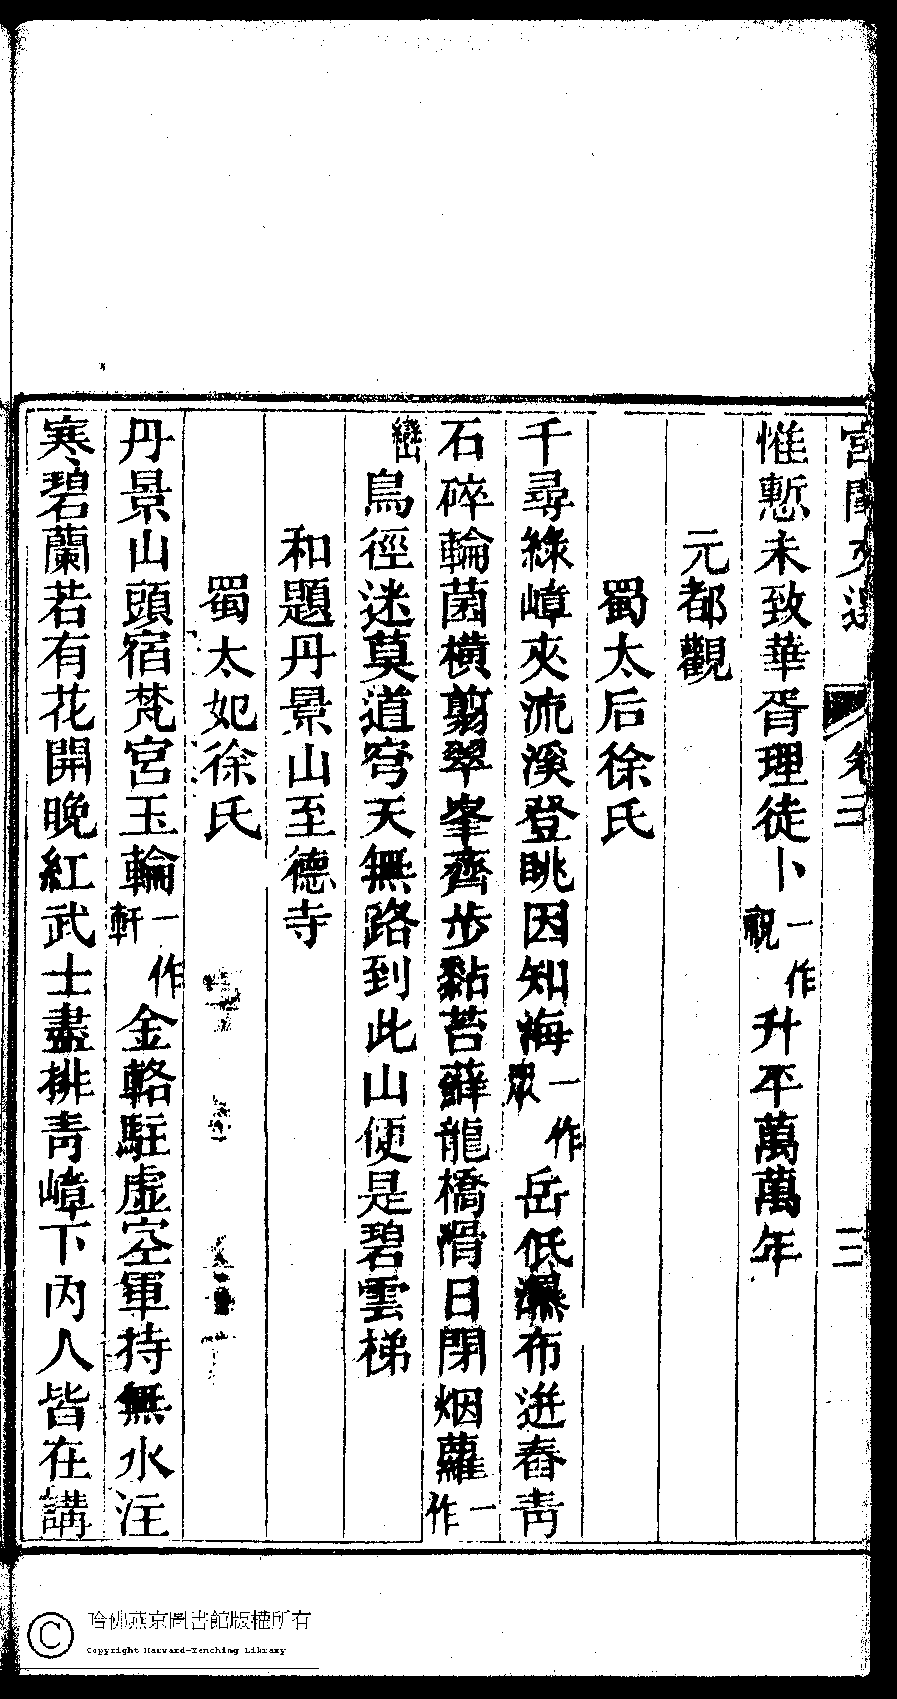 惟慙未致華胥理徒卜一作祝升平萬萬年
元都觀
蜀太后徐氏
千尋綠嶂夾流溪登眺因知海一作衆岳低瀑布迸舂靑
石碎輪菌橫剪翠峯齊步黏苔蘚龍橋滑日閉烟蘿一作
巒鳥徑迷莫道穹天無路到此山便是碧雲梯
和題丹景山至德寺
蜀太妃徐氏
丹景山頭宿梵宮玉輪一作軒金輅駐虛空軍持無水注
寒碧蘭若有花開晚紅武士盡排靑嶂下內人皆在講
哈佛燕京圖書館版權所有
Copyright Harvard-Yenching Library